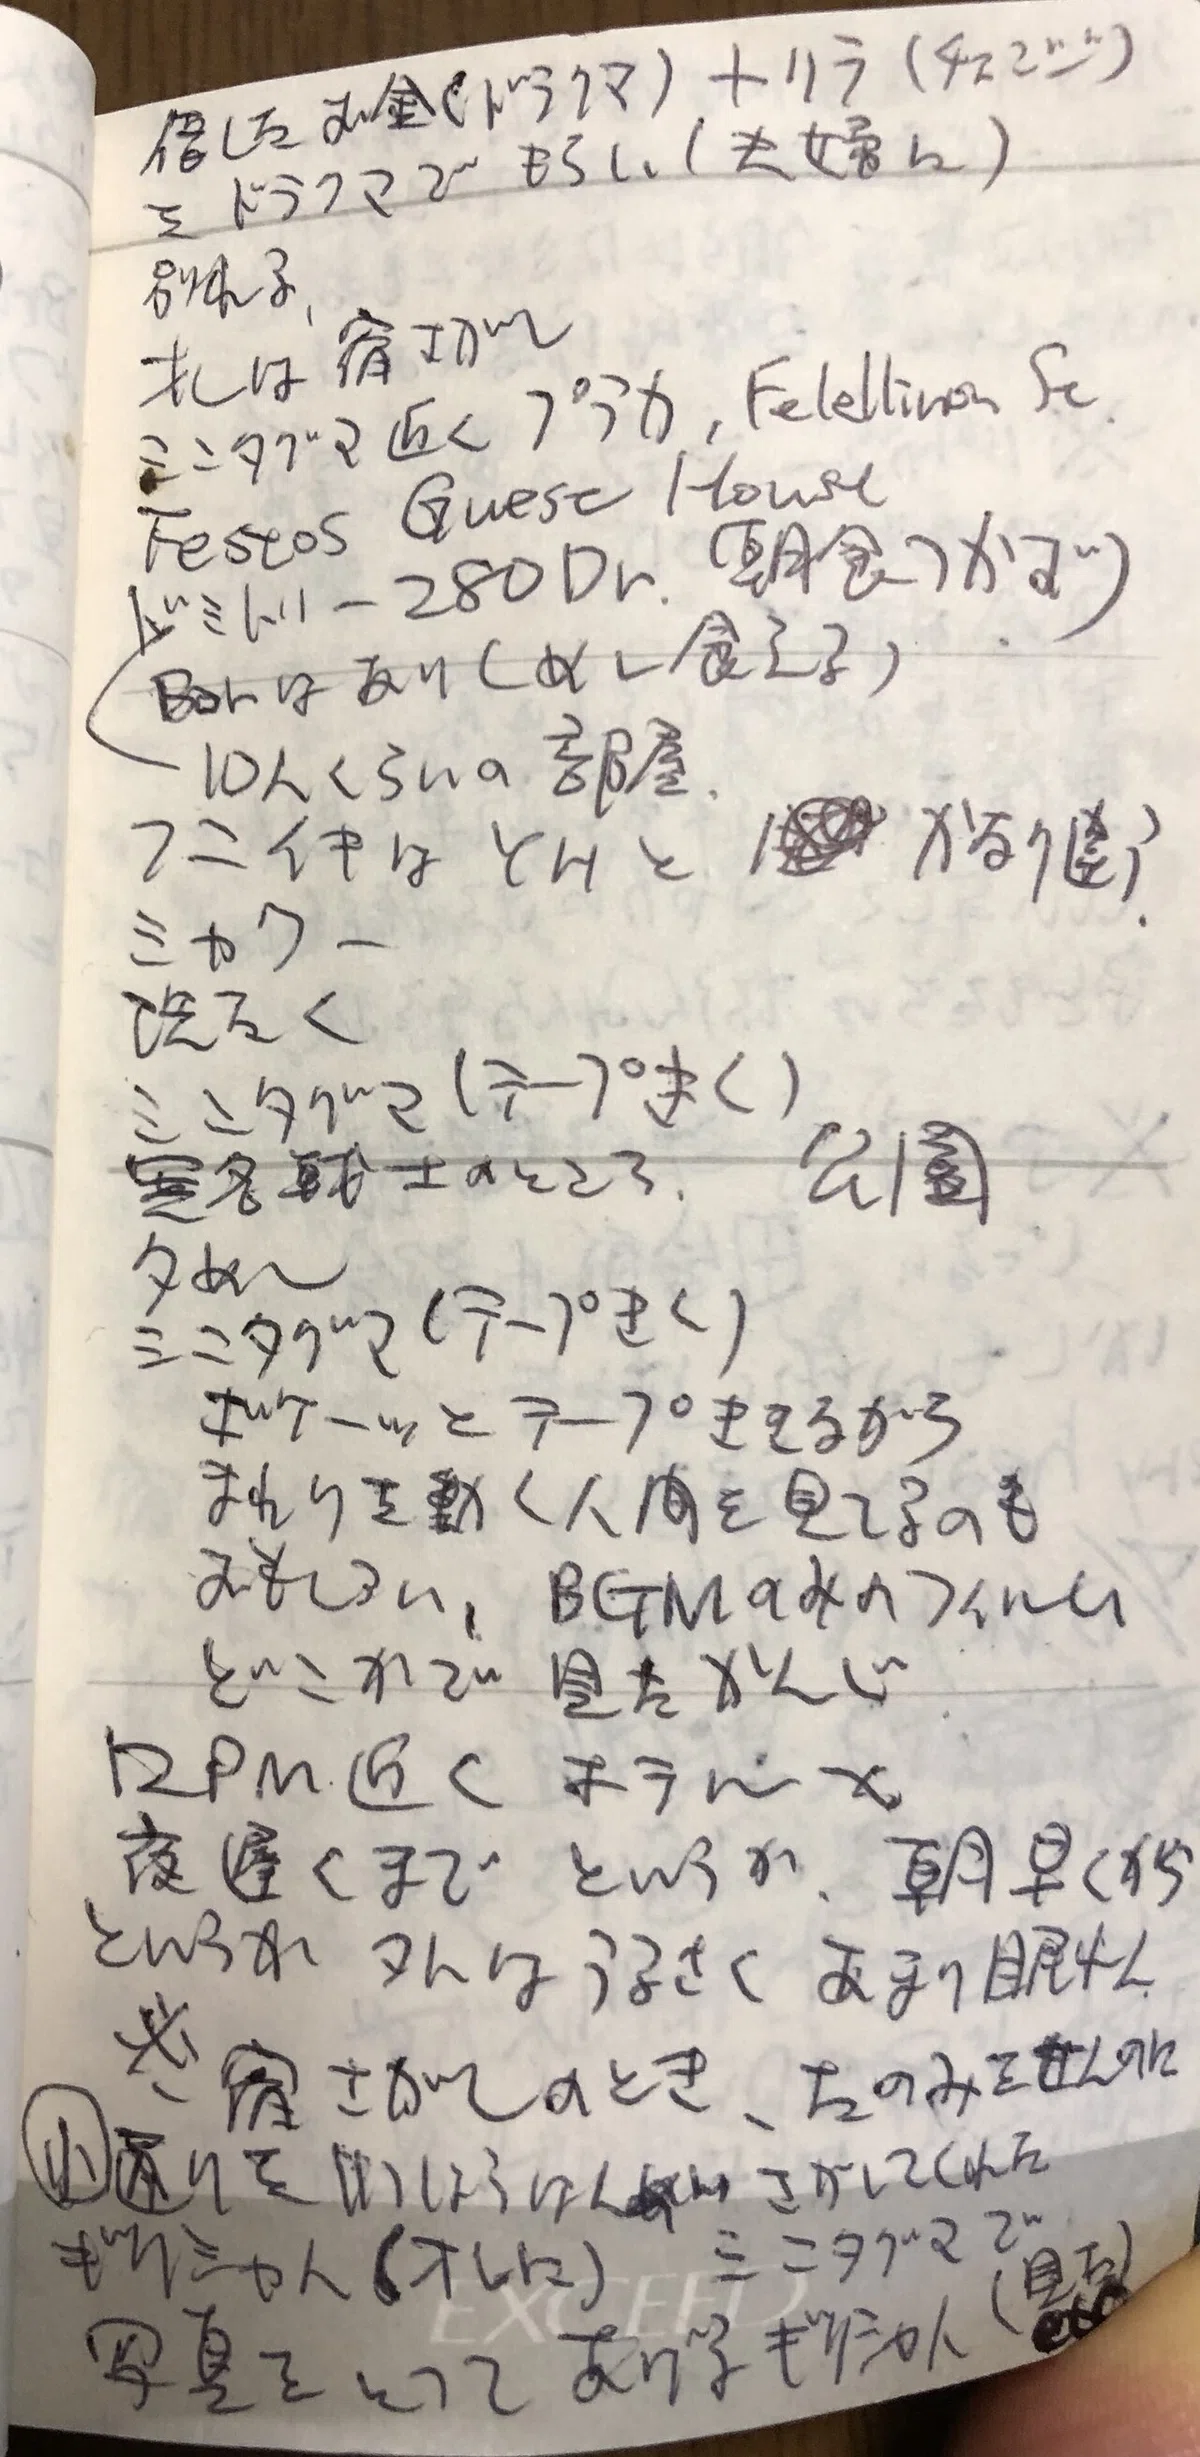 貸したお金(ドラクマ)+リラ(チェンジ)
をドラクマでもらい(夫婦に)
別れる、
オレは宿さがし
シンタグマ近くプラカ, Felellinon St.
Festos Guest House
ドミトリー280Dr. (朝食つかず)
Barはあり(めし食える)
10人くらいの部屋.
フンイキは かなり違う.
シャワー
洗たく
シンタグマ(テープきく)
無名戦士のところ. 公園
夕めし
シンタグマ(テープきく)
ボケーッとテープききながら
まわりを動く人間を見てるのも
おもしろい, BGMのみのフィルム
どこかで見たかんじ
12PM.近くホテルへ
夜遅くまでというか、朝早くから
というか はうるさくあまり眠れん
※宿さがしのとき、たのみもせんのに
小通りを さがしてくれた
ギリシャ人(オレに) シンタグマで
写真をとってあげるギリシャ人(見た)
EXCEED